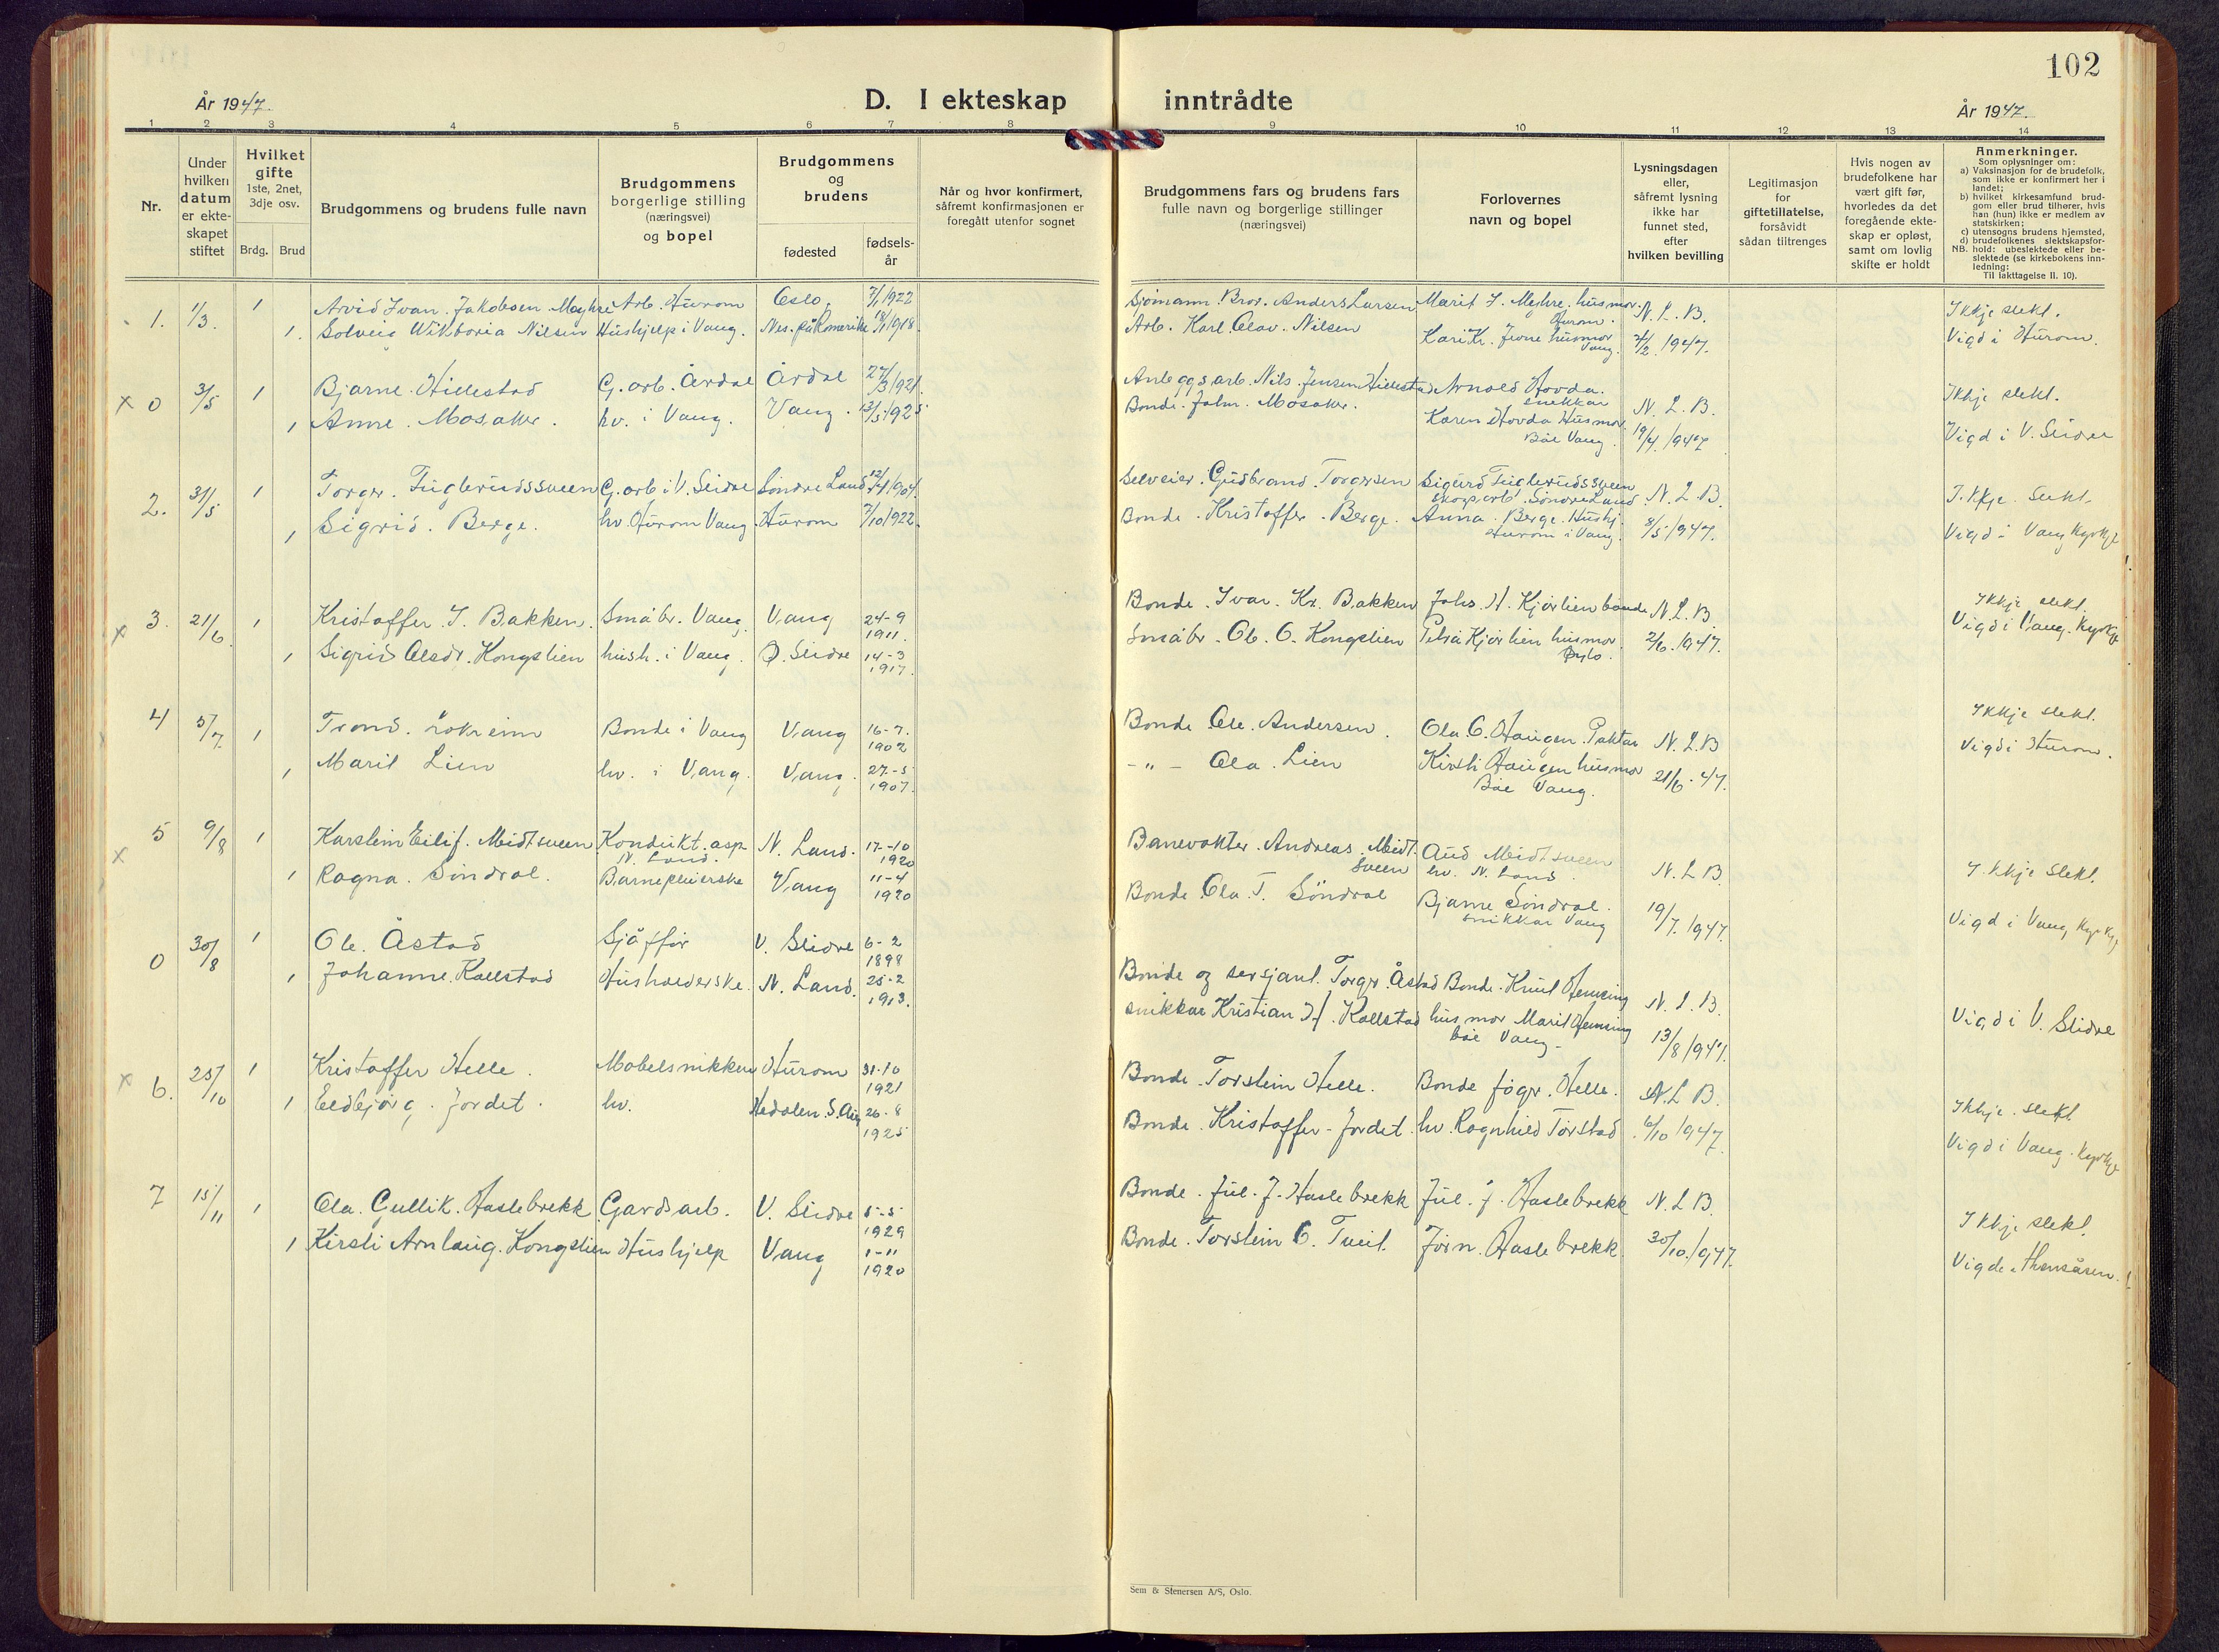 102
År 1947.
D. I ekteskap inntrådte
År 1947.
1 2 3 4 5 6 7 8 9 10 11 12 13 14
Nr.
Under hvilken datum er ekteskapet stiftet
Hvilket gifte
1ste, 2net, 3dje osv.
Brdg. Brud
Brudgommens og brudens fulle navn
Brudgommens borgerlige stilling (næringsvei) og bopel
Brudgommens og brudens
fødested
fødsels-år
Når og hvor konfirmert, såfremt konfirmasjonen er foregått utenfor sognet
Brudgommens fars og brudens fars fulle navn og borgerlige stillinger (næringsvei)
Forlovernes navn og bopel
Lysningsdagen eller, såfremt lysning ikke har funnet sted, efter hvilken bevilling
Legitimasjon for giftetillatelse, forsåvidt sådan tiltrenges
Hvis nogen av brudefolkene har vært gift før, hvorledes da det foregående ekteskap er opløst, samt om lovlig skifte er holdt
Anmerkninger.
Som oplysninger om:
a) Vaksinasjon for de brudefolk, som ikke er konfirmert her i landet;
b) hvilket kirkesamfund brudgom eller brud tilhører, hvis han (hun) ikke er medlem av statskirken;
c) utensogns brudens hjemsted,
d) brudefolkenes slektskapsforhold: ubeslektede eller beslektede (se kirkebokens innledning:
NB.
Til iakttagelse II. 10).
1. 1/3. 1 Arvid Ivan Jakobsen Arb. Hurom Oslo. 7/1 1922 Sjømann Anders Larsen Marit J. husmor Hurom. N. L. B. Ikkje slekt.
1. Solveig Wiktoria Nilsen Hushjelp i Vang. Nes på Romerike 1918. Arb. Karl Olav Nilsen Kari Kr. husmor Vang. 7/2 1947. Vigd i Hurom.
x 0 3/5 1 Bjarne Hillestad G. arb. Årdal Årdal 27/3 1921. Anleggsarb. Nils Jensen Hillestad Arnold Hovda snekkar N. L. B. Ikkje slekt.
1 Anne Mosaker. hv. i Vang. Vang. 13/5 1925 Bonde John Mosaker. Karen Hovda Husmor Bøe Vang. 19/4 1947 Vigd i V. Slidre
2. 31/5 1 Torger Fuglerudssveen G. arb i V. Slidre Søndre Land 12/4 1904. Selveier Gudbrand Torgersen Sigurd Fuglerudssveen skogsarb. Søndre Land. N. L. B. Ikkje Slekt.
1 Sigrid Berge. hv. Hurom Vang Hurom 7/10 1922. Bonde Kristoffer Berge. Anna Berge Hushj. Hurom i Vang. 8/5 1947. Vigd i Vang Kyrkje
x 3. 21/6 1 Kristoffer I. Bakken. Småbr. Vang. Vang 24-9 1911. Bonde Ivar Kr. Bakken Johs. H. Kjørlien bonde N. L. B. Ikkje slekt.
1 Sigrid Olsdr. Kongslien hush. i Vang. Ø. Slidre 14-3 1917. Småbr. Ol. O. Kongslien Petra Kjørlien husmor Øylo. 2/6. 1947. Vigd i Vang. Kyrkje
4 5/7. 1 Trond Lokreim Bonde i Vang Vang 16-7. 1902 Bonde Ole Andersen. Ola O. Haugen N. L. B. Ikkje slekt.
1 Marit Lien hv. i Vang. Vang. 27-5 1907. -"- Ola Lien Kirsti Haugen husmor Bøe Vang. 21/6-47. Vigd i Hurom.
x 5 9/8 1 Karstein Eilif Midtsveen Kondukt. asp. N. Land. N. Land. 17-10 1920 Banevokter Andreas Midtsveen Aud Midtsveen hv. N. Land. N. L. B. Ikkje slekt.
1 Ragna Søndrol. Barnepleierske Vang 11-4 1920 Bonde Ola T. Søndrol Bjarne Søndrol. snikkar Vang 19/7. 1947. Vigd i Vang Kyrkje
0 30/8 1 Ole Åstad Sjåffør V. Slidre 6-2 1898 Bonde og sersjant Torgr. Åstad Bonde Knut Hemsing N. L. B.
1 Johanne Kollstad Husholderske. N. Land. 25-2 1913. snikkar Kristian H. Kollstad husmor Marit Hemsing båe Vang. 13/8 1947. Vigd i V. Slidre
x 6. 25/10 1 Kristoffer Helle. Møbelsnikker Hurom 31-10 1921 Bonde Torstein Helle. Bonde Helle. N. L. B. Ikkje slekt
1 Eldbjørg Jordet. hv. Hedalen S. Aur. 26-8 1925 Bonde Kristoffer Jordet. hv. Ragnhild Torstad 6/10 1947 Vigd i Vang. Kyrkje
7 15/11 1 Ola Gullik Haslebrekk Gardsarb. V. Slidre 5-5 1929 Bonde Jul. J. Haslebrekk Jul. J. Haslebrekk N. L. B. Ikkje slekt.
1 Kirsti Arnlaug Kongslien Hushjelp Vang 1-11 1920 Bonde Torstein O. Tveit. Jørn Haslebrekk. 30/10. 1947. Vigde i Thomsåsen.
Sem & Stenersen A/S, Oslo.